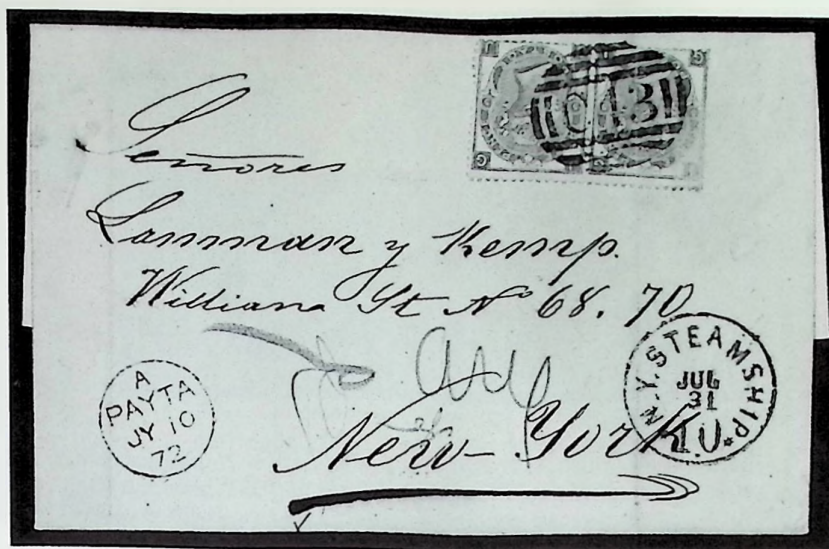 C43
Señores
Lanman y Kemp.
William St Nº 68. 70
A
PAYTA
JY 10
72
N.Y. STEAMSHIP
JUL
31
10
New York